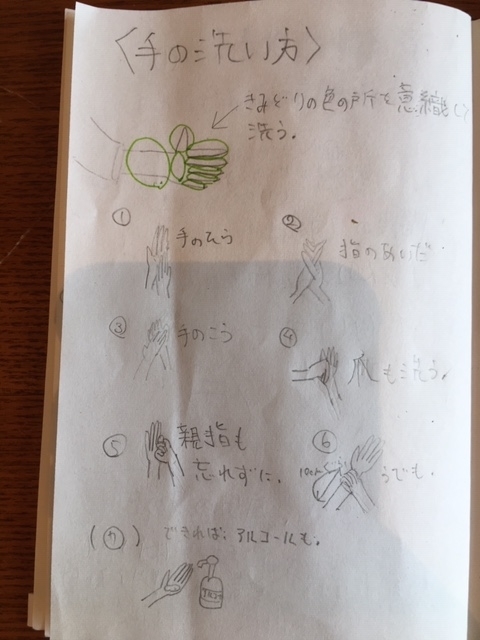 〈手の洗い方〉
きみどりの色の所を意識し
洗う。
① 手のひら
② 指のあいだ
③ 手のこう
④ 爪も洗う。
⑤ 親指も
忘れずに。
⑥ うでも。
(⑦) できれば、アルコールも。